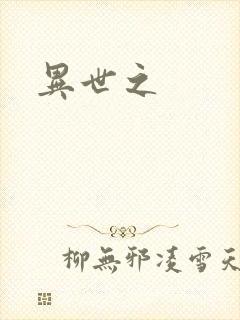 異世之
柳無邪凌雪天